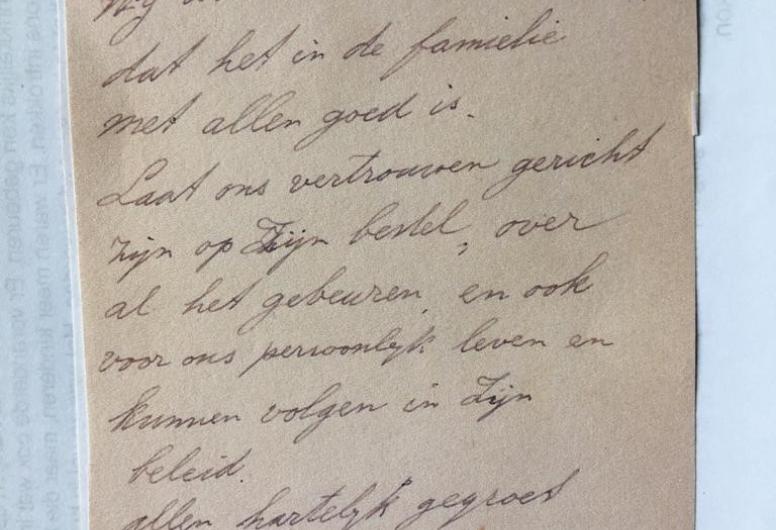 Wij
dat het in de famielie
met allen goed is.
Laat ons vertrouwen gericht
zijn op Zijn bestel, over
al het gebeuren, en ook
voor ons persoonlyk leven en
kunnen volgen in Zijn
beleid.
allen hartelyk gegroet